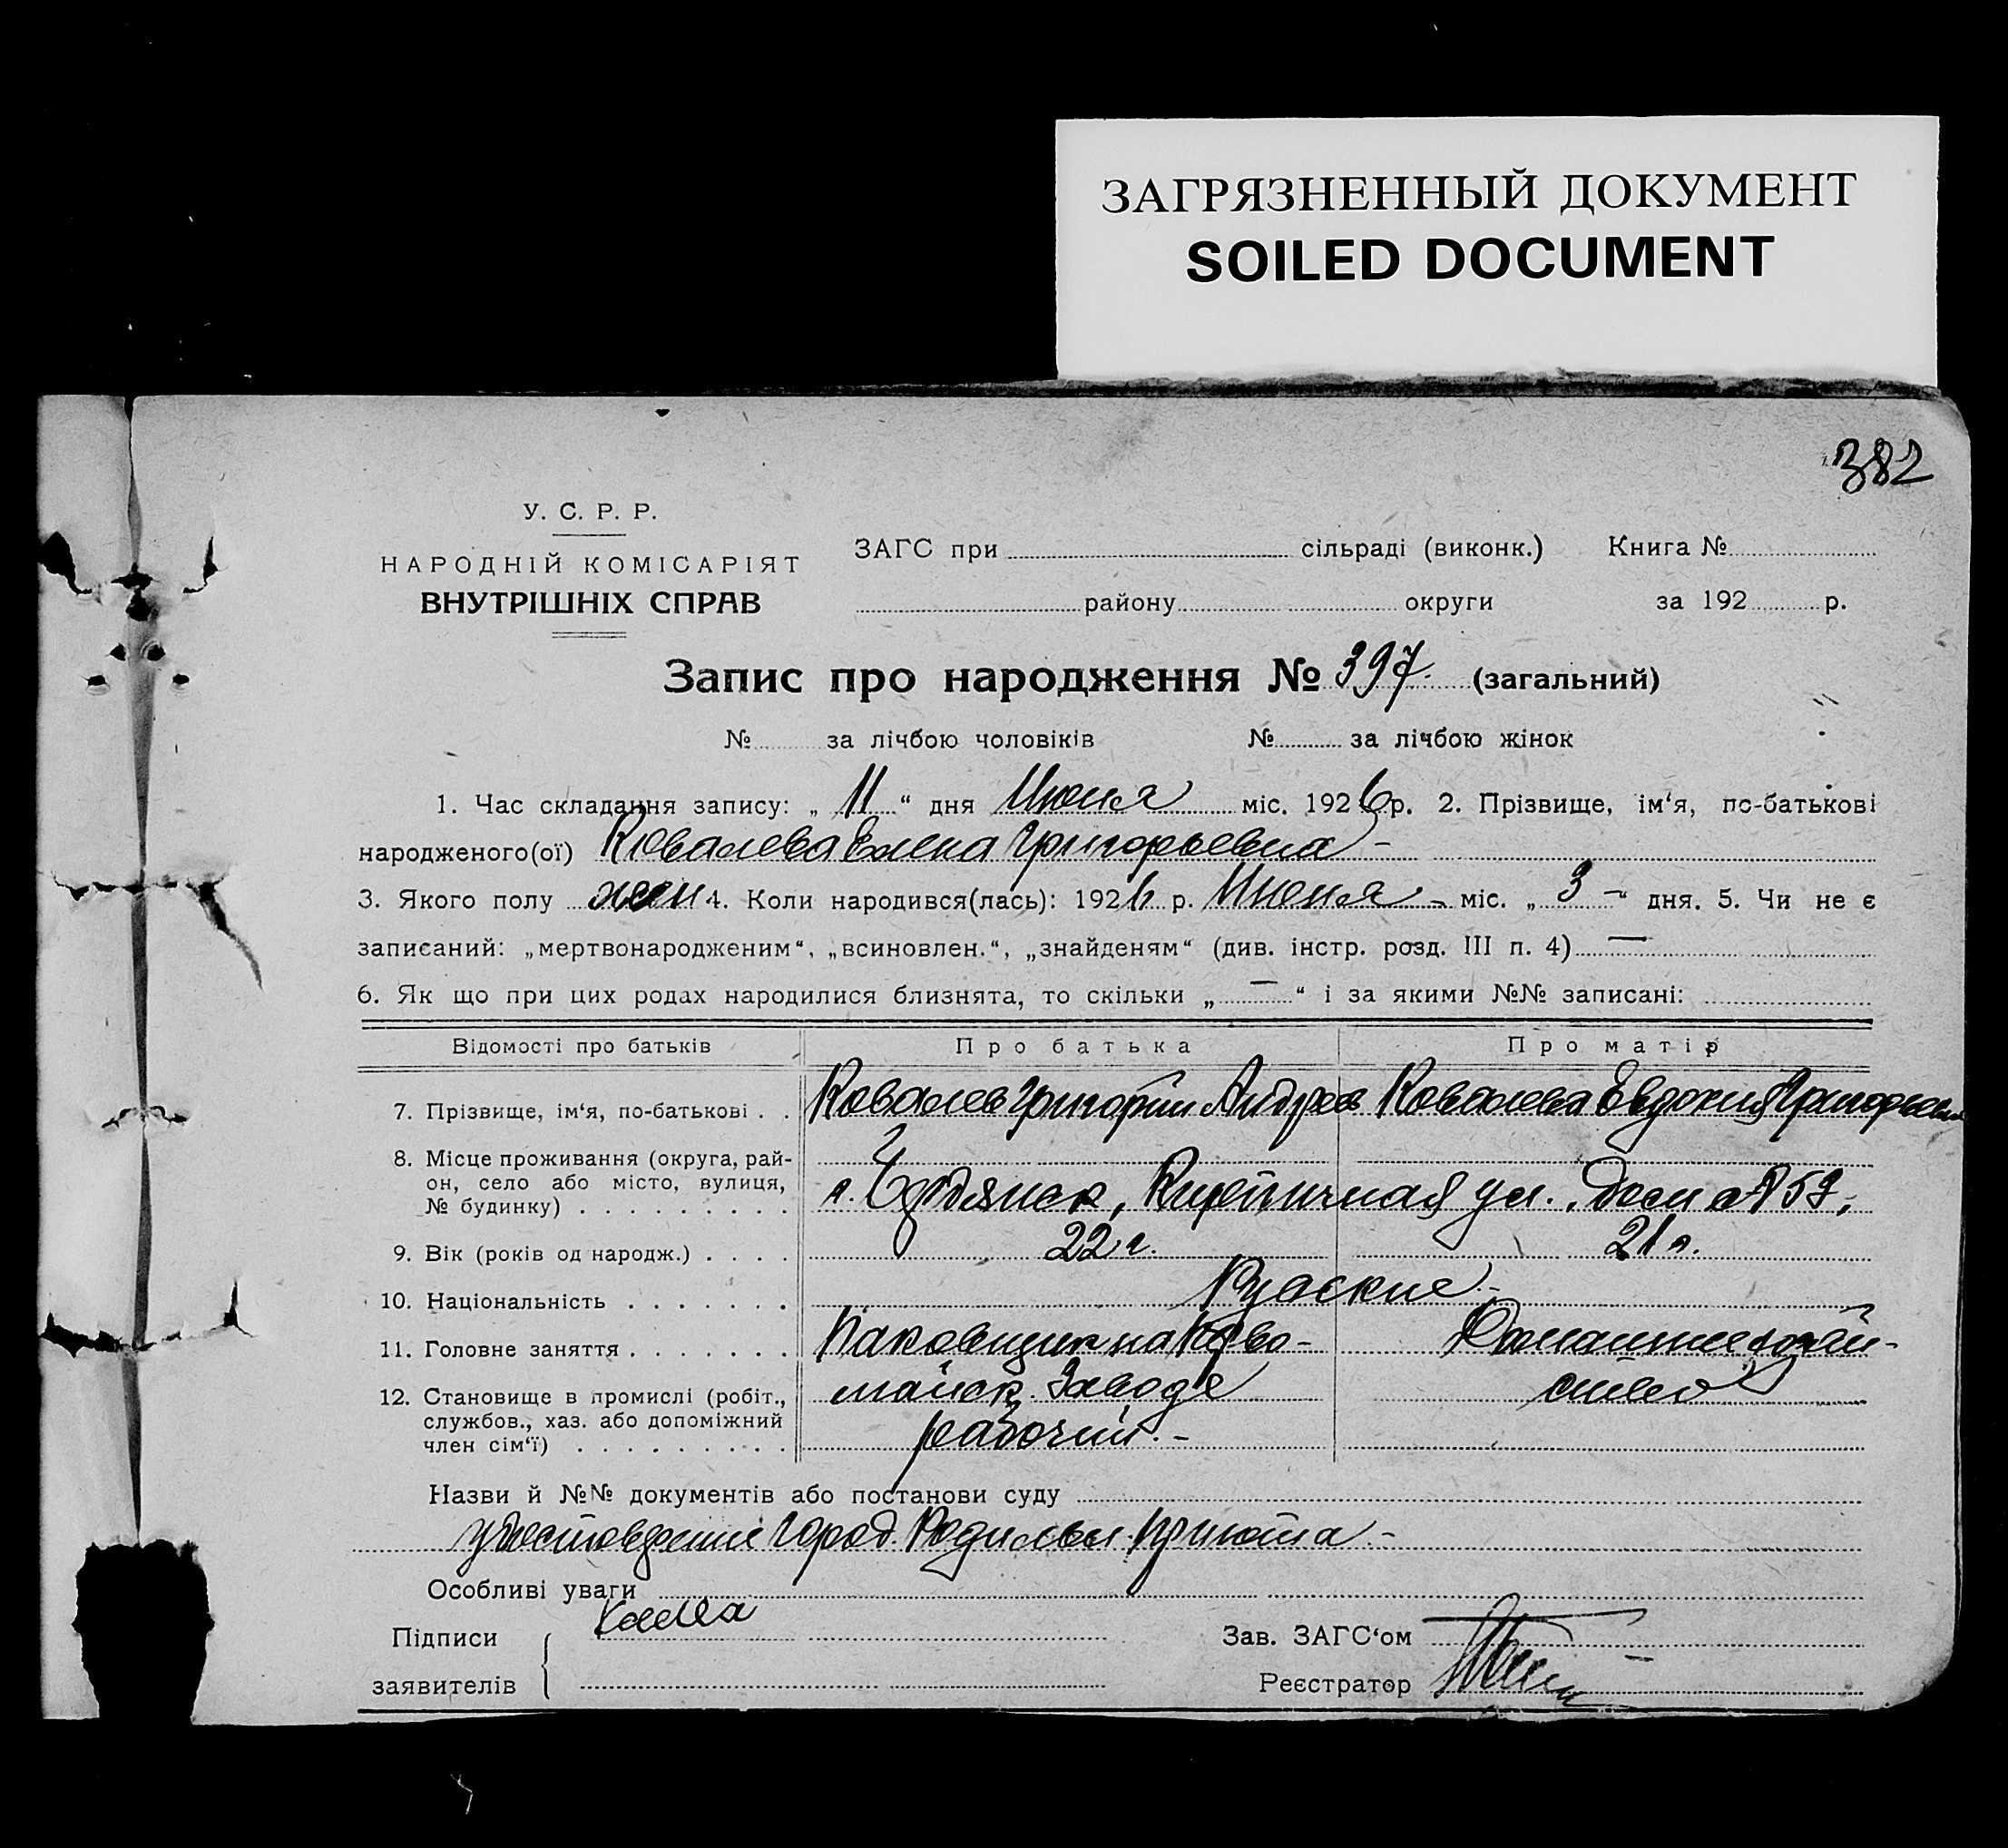 ЗАГРЯЗНЕННЫЙ ДОКУМЕНТ
SOILED DOCUMENT
382
У. С. Р. Р.
НАРОДНІЙ КОМІСАРІЯТ
ВНУТРІШНІХ СПРАВ
ЗАГС при сільраді (виконк.) Книга №
району округи за 192 р.
Запис про народження № 397. (загальний)
№ за лічбою чоловіків № за лічбою жінок
1. Час складання запису: „ 11 “ дня Июня міс. 1926 р. 2. Прізвище, ім‘я, по-батькові
народженого(ої) Ковалева Елена Григорьевна -
3. Якого полу жен 4. Коли народився(лась): 1926 р. Июня - міс. „ 3 - “ дня. 5. Чи не є
записаний: „мертвонародженим“, „всиновлен.“, „знайденям“ (див. інстр. розд. III п. 4) —
6. Як що при цих родах народилися близнята, то скільки „ — “ і за якими №№ записані:
Відомості про батьків Про батька Про матір
7. Прізвище, ім‘я, по-батькові . . Ковалев Григорий Андреев Ковалева Евдокия Григорьевна
8. Місце проживання (округа, рай-
он, село або місто, вулиця, г. Бердянск, Кирпичная ул., дом № 59,
№ будинку) . . . . . . . . .
9. Вік (років од народж.) . . . . 22 г. 21 г.
10. Національність . . . . . . . Руские -
11. Головне заняття . . . . . . . Паковщик на Перво- Домашнее хозяй-
12. Становище в промислі (робіт., майск. Заводе ство
службов., хаз. або допоміжний рабочий. -
член сім‘ї) . . . . . . . . .
Назви й №№ документів або постанови суду
удостоверение город. Родильн. приюта -
Особливі уваги
Підписи
заявителів
Зав. ЗАГС‘ом
Реєстратор